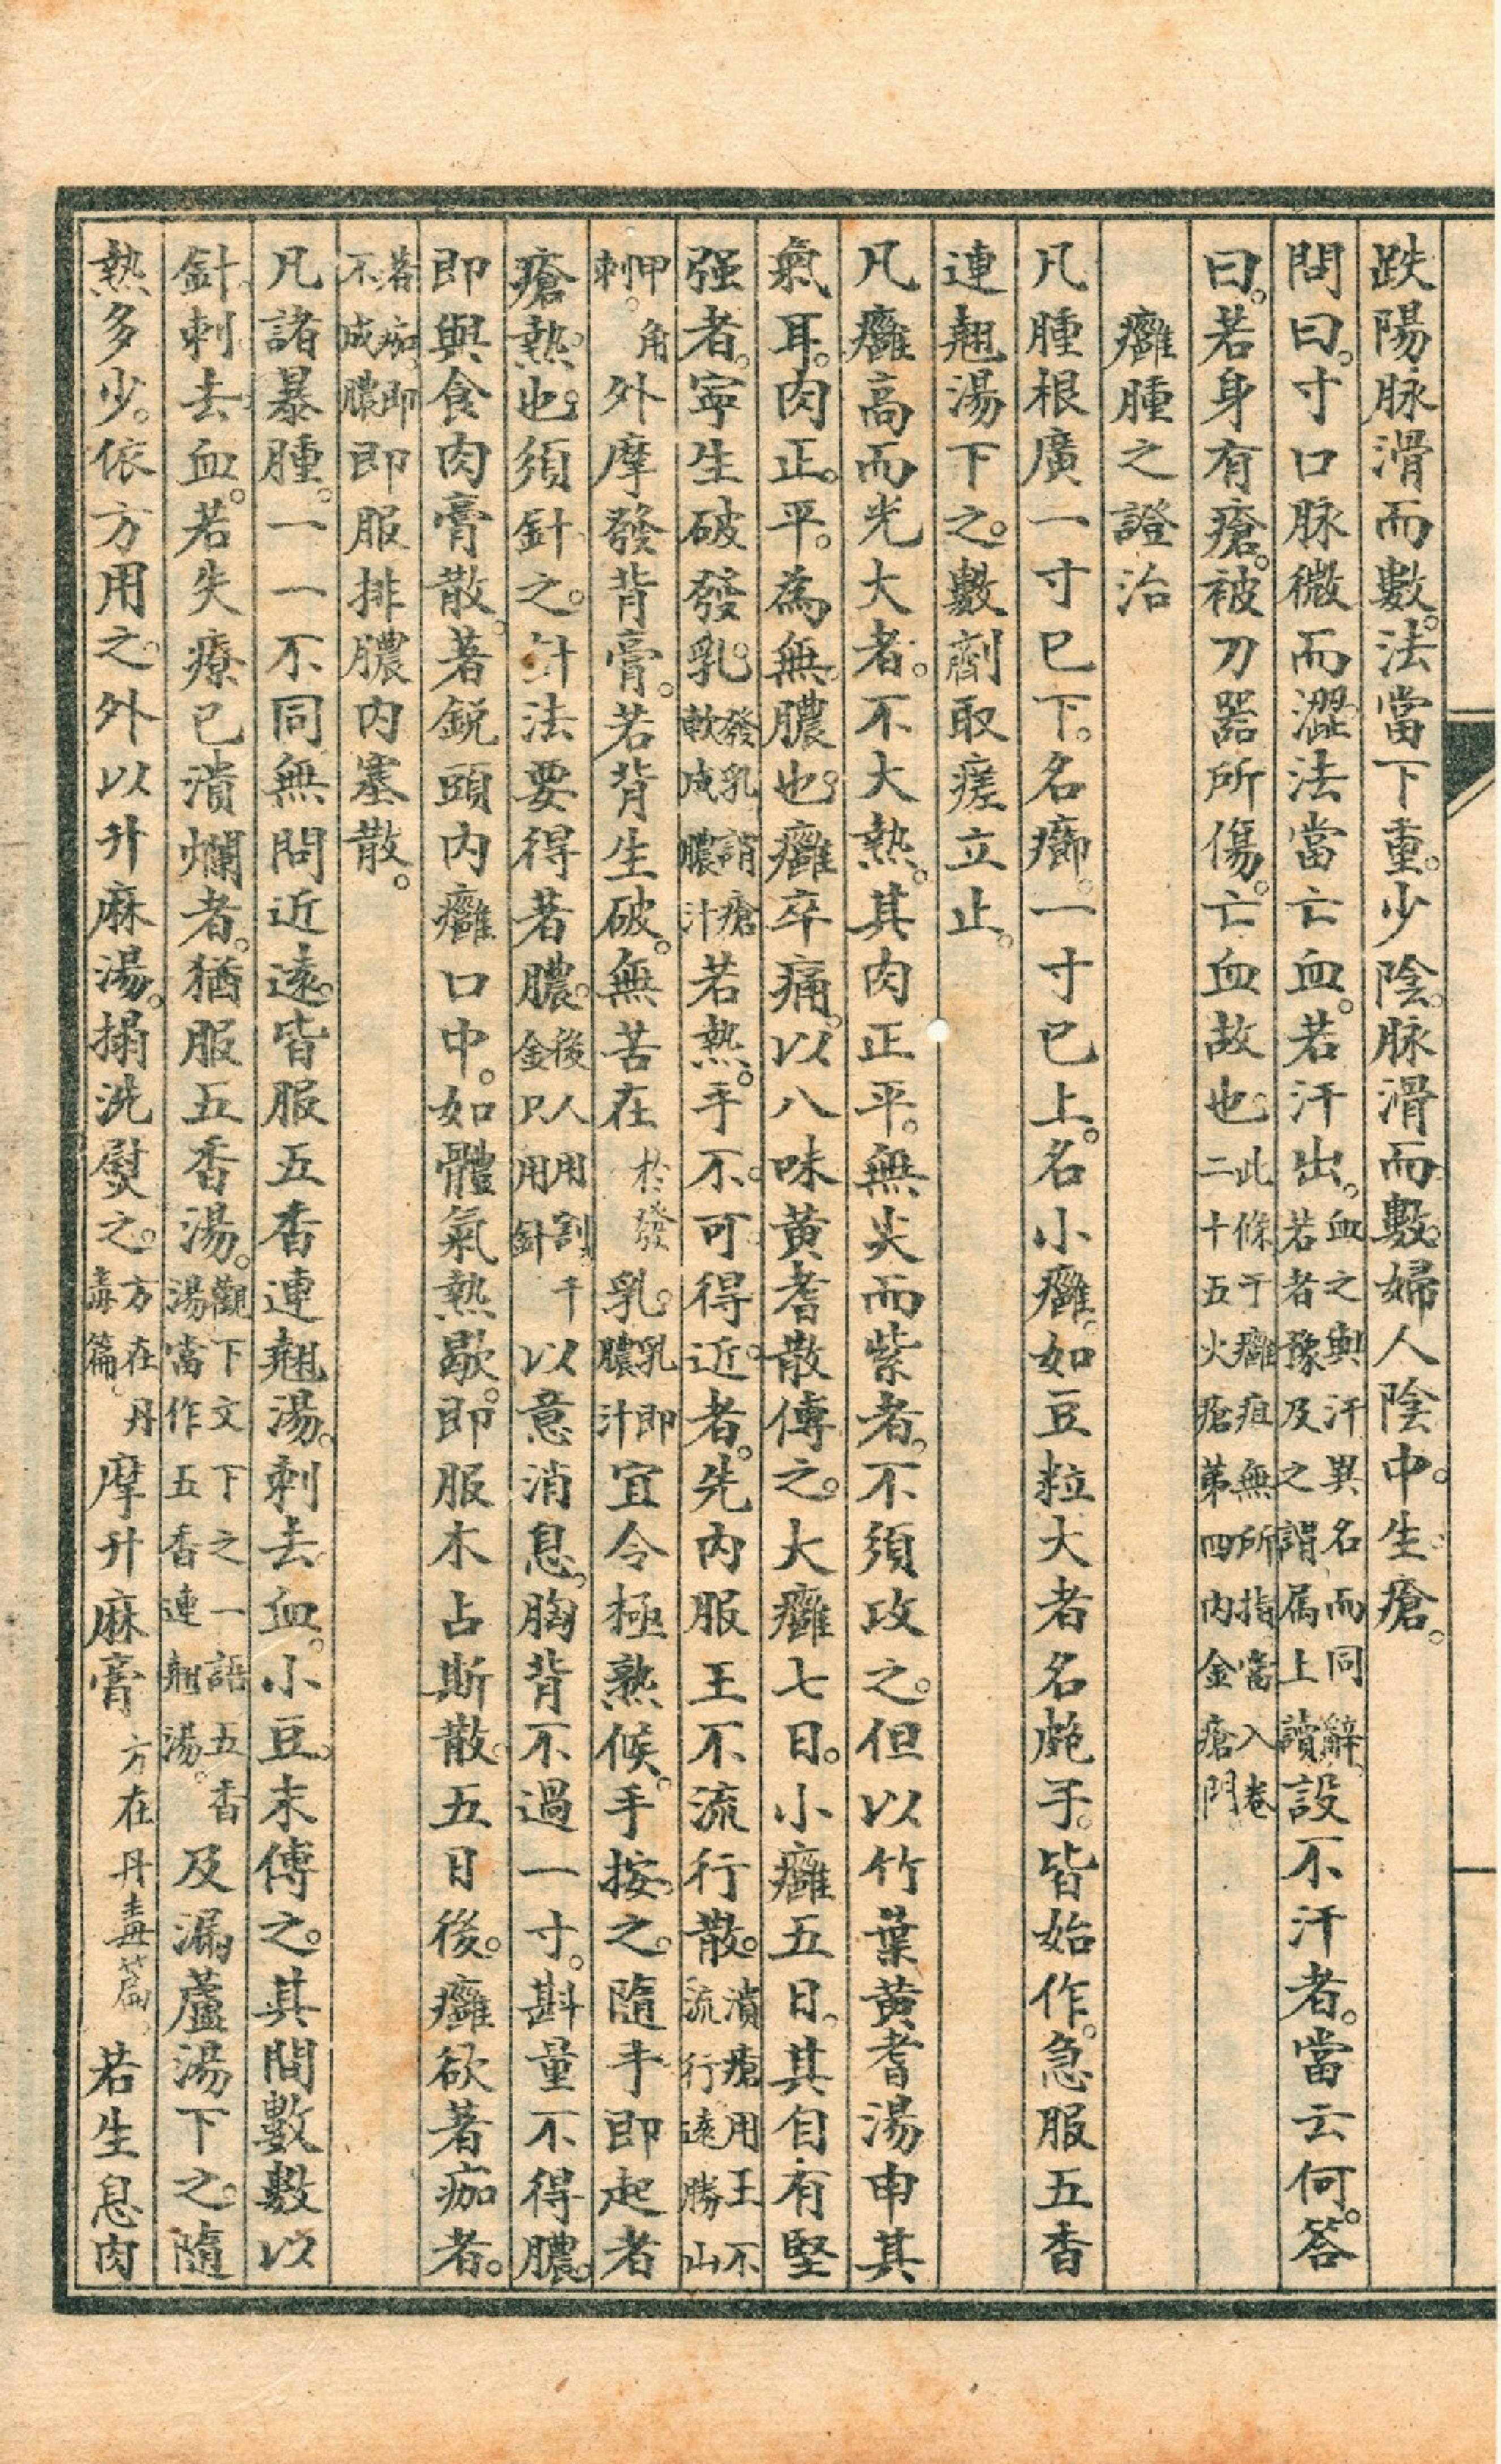 跌陽脉滑而數。法當下重。少陰脉滑而數。婦人陰中。生瘡。
問曰。寸口脉微而澀法當亡血。若汗出。血之與汗異名而同辭。若者豫及之謂属上讀設不汗者。當云何。答
曰。若身有瘡。被刀器所傷。亡血故也。此條于癰疽無所指當入卷二十五火瘡第四內金瘡門
癰腫之證治
凡腫根廣一寸已下。名癤。一寸已上。名小癰。如豆粒大者名皰子。皆始作。急服五香
連翹湯下之。數劑取瘥立止。
凡癰高而光大者。不大熱。其肉正平。無尖而紫者。不須攻之。但以竹葉黃耆湯申其
氣耳。肉正。平。為無。膿也。癰卒痛。以八味黃耆散傅之。大癰七日。小癰五日。其自有堅
强者。寧生破發乳。發乳謂瘡軟成膿汁若熱。手不可得近者。先內服王不流行散。潰瘡用王不流行遠勝山
甲角刺。外摩發背膏。若背生破。無苦在於發乳。乳即膿汁宜令極熟候。手按之。隨手即起者
瘡熱也。須針之。針法要得著膿。後人用割金尸用針以意消息。胸背不過一寸。斟量不得膿。
即與食肉膏散。著鋭頭內癰口中。如體氣熱歇。即服木占斯散。五日後。癰欲著痂者。
若痂即不成膿即服排膿內塞散。
凡諸暴腫。一一不同無問近遠。皆服五香連翹湯。刺去血。小豆末傅之。其間數數以
針刺去血。若失療已潰爛者。猶服五香湯。觀下文下之一語五香湯當作五香連翹湯。及漏蘆湯下之。隨
熱多少。依方用之。外以升麻湯。搨洗熨之。方在丹毒篇。摩升麻膏方在丹毒篇。若生息肉